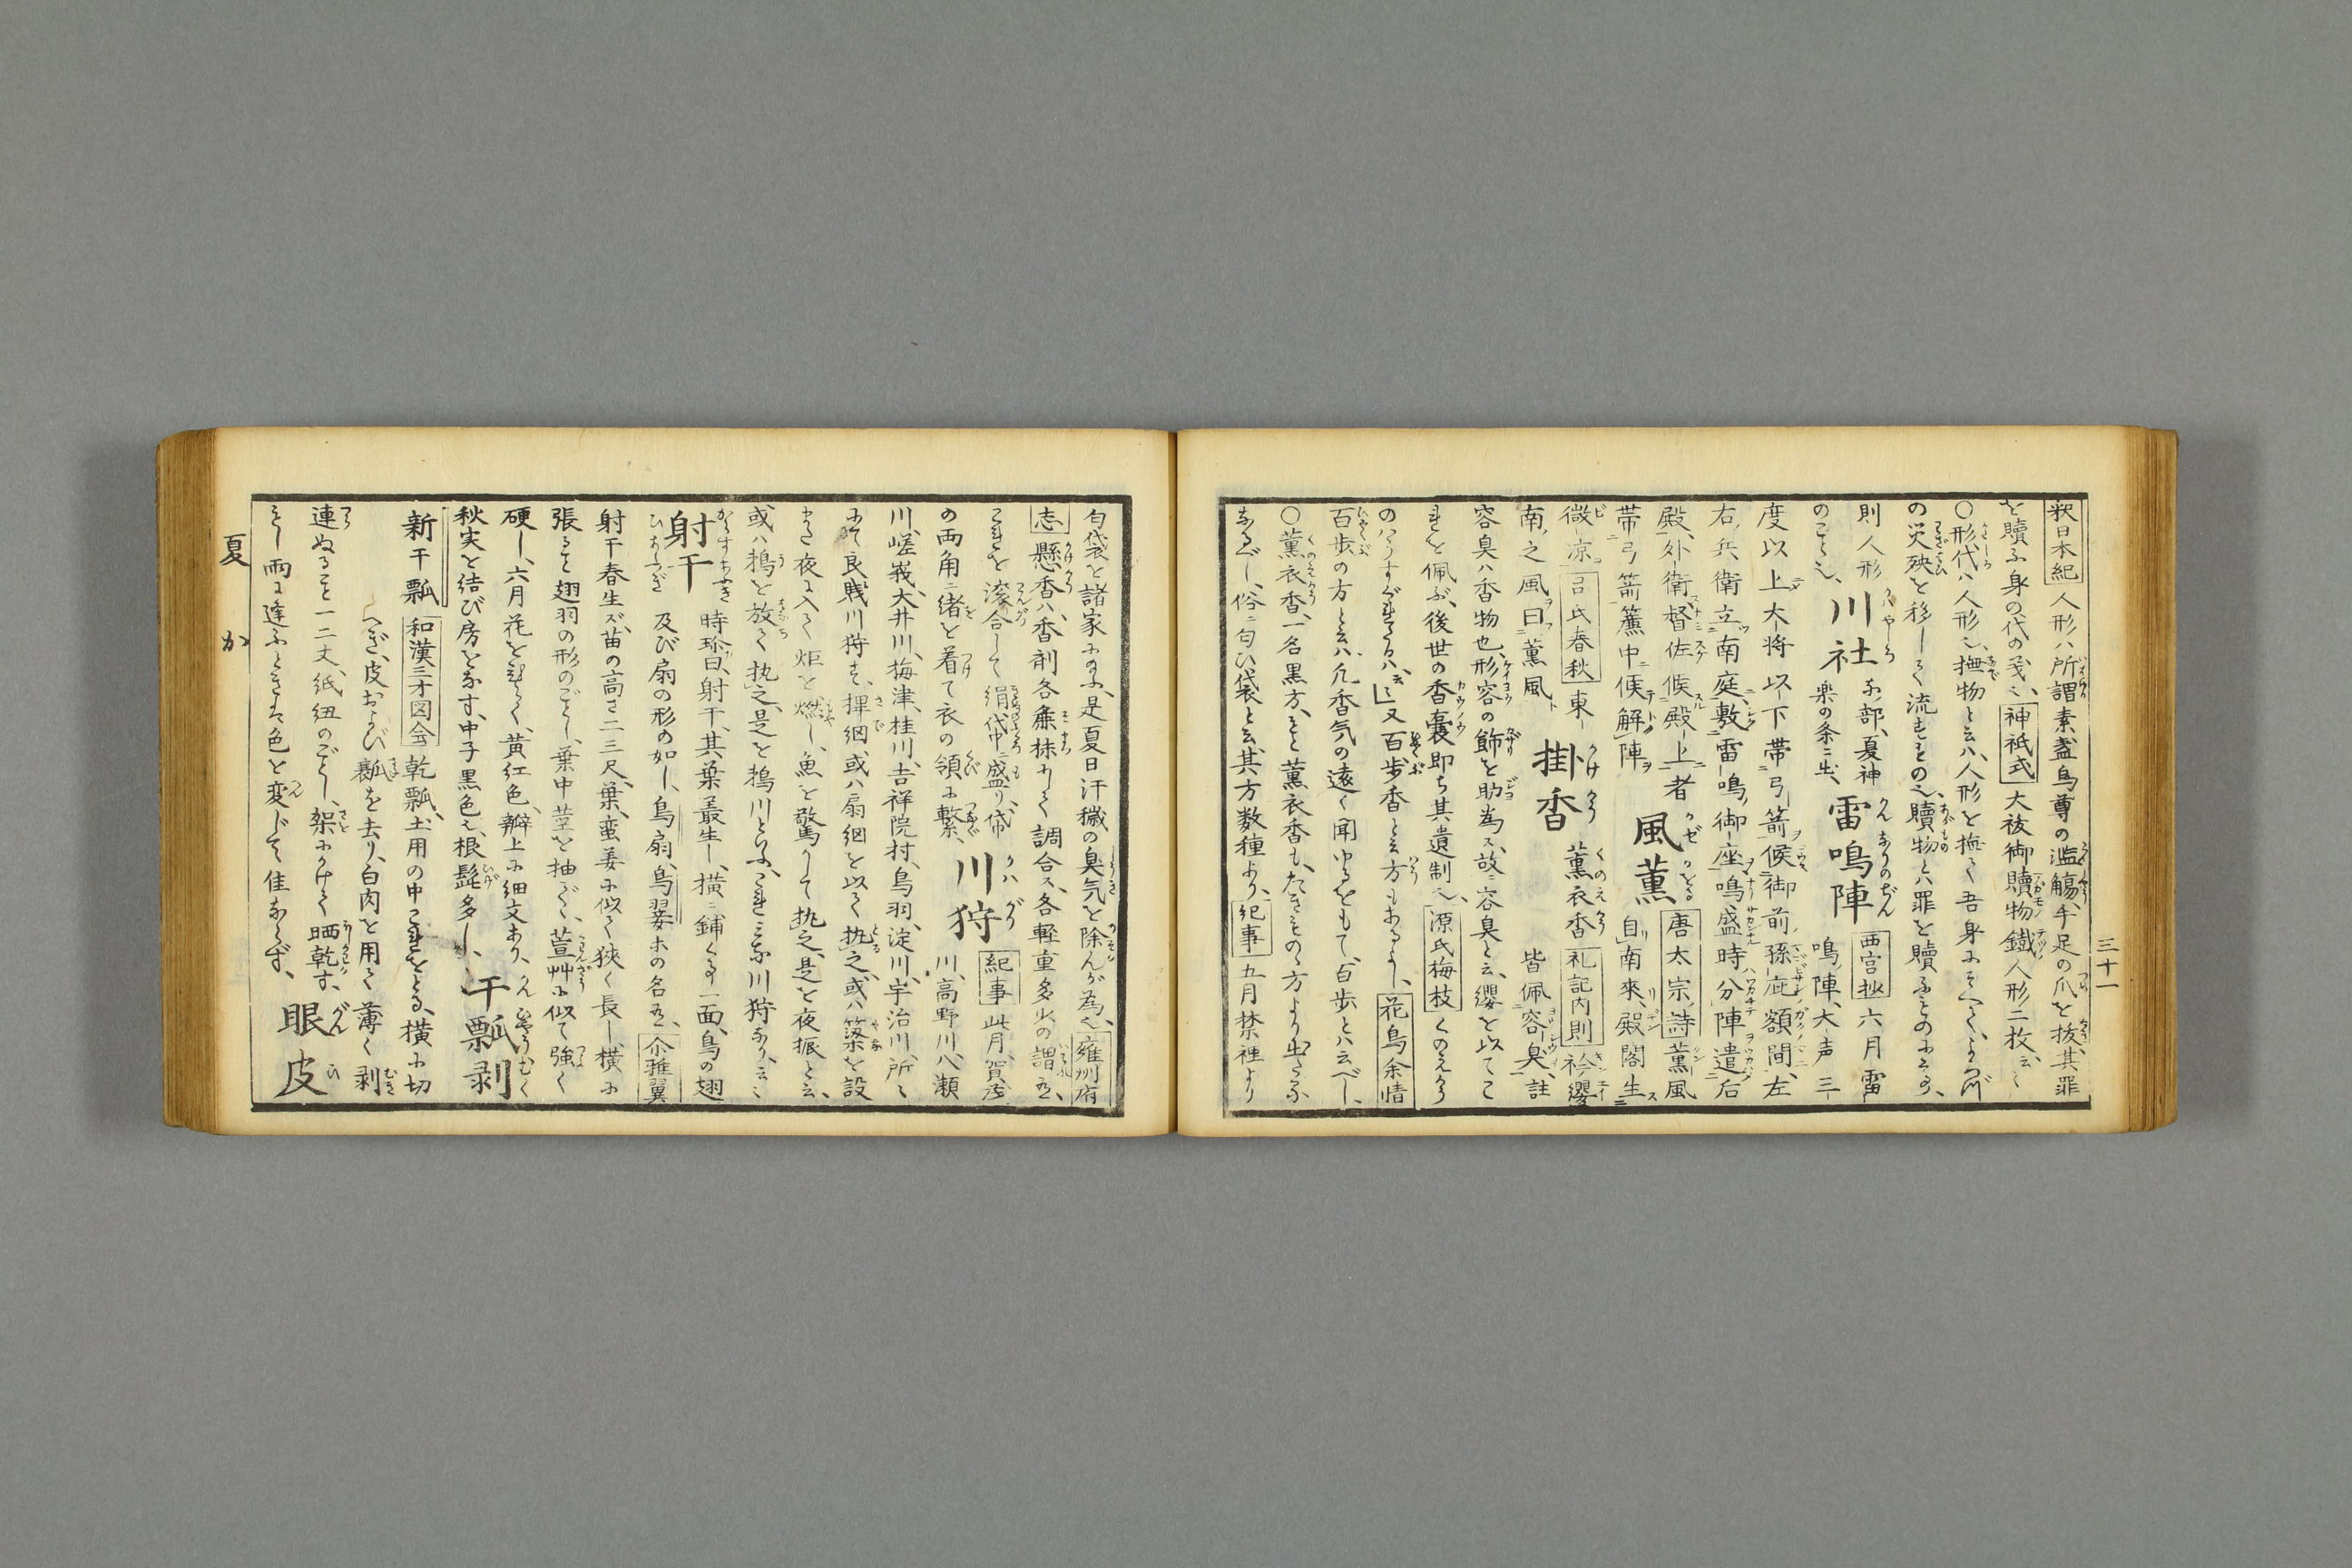 三十一
釈日本紀 人形ハ所謂素盞烏尊の濫觴手足の爪を抜、其罪
を贖ふ身の代の義也、神祇式 大祓御贖物鐵人形二枚云々
〇形代ハ人形也、撫物と云ハ、人形を撫て吾身に
の災殃を移して流すもの也、贖物とハ罪を贖ふものにて
則人形のこと也、川社 夏神楽の条ニ出、雷鳴陣 西宮抄 六月雷
鳴陣、大声三
度以上大将以下帯弓箭候御前、孫庇額間、左
右兵衛立南庭、敷雷鳴御座、鳴盛時分陣遣后
殿、外衛督佐候殿上者 風薫 唐太宗詩 薫風
帯弓箭簾中候解陣 自南来、殿閣生
微凉 呂氏春秋 東 掛香 薫衣香 礼記内則 衿纓
南之風曰薫風 皆佩容臭、註
容臭ハ香物也、形容の飾を助為ス、故ニ容臭と云、纓を以てこ
れを佩ぶ、後世の香嚢即ち其遺制也、源氏梅枝 くのえかう
のすぐれたるハ云云」又百歩香と云方もあるよし、花鳥余情
百歩の方と云ハ、凡香気の遠く聞ゆるをもて、百歩とハ云べし、
〇薫衣香、一名黒方、そと薫衣香も、たきものゝ方より出たる
なるべし、俗ニ匂ひ袋と云、其方数種あり、紀事 五月禁裡より
匂袋を諸家に給ふ、是夏日汗穢の臭気を除んが為也、雍州府
志 懸香ハ、香剤各麁抹して調合ス、各軽重多少の謂有、
これを滚合して絹帒中ニ盛り、帒
の両角ニ緒を着て衣の領に繋、川狩 紀事 此月、賀茂
川、高野川、八瀬
川、嵯峨、大井川、梅津、桂川、吉祥院村、鳥羽、淀川、宇治川、所々
にて良賤川狩す、㨽網或ハ扇網を以て執之、或ハ簗を設
また夜に入て炬を燃し、魚を驚かして執之、是を夜振と云、
或ハ鵜を放て執之、是を鵜川といふ、これミな川狩なり、云云
射干 時珍曰、射干、其葉叢生し、横ニ鋪くこと一面、烏の翅
及び扇の形の如し、烏扇、烏翣ホの名有、尒雅翼
射干春生ズ、苗の高さ二三尺、葉、蛮姜に似て狭く長し、横に
張ること翅羽の形のごとし、葉中茎を抽づ、萱艸に似て強く
硬し、六月花をひらく、黄紅色、瓣上に細文あり、
秋実を結び房をなす、中子黒色也、根髭多し、干瓢剥
新干瓢 和漢三才図会 乾瓢、土用の中これをとる、横に切
へぎ、皮および瓤を去り、白肉を用て薄く剥
連ぬること一二丈、紙紐のごとし、架にかけて晒乾す、
もし雨に逢ふときは色を変じて佳ならず、眼皮
夏 か